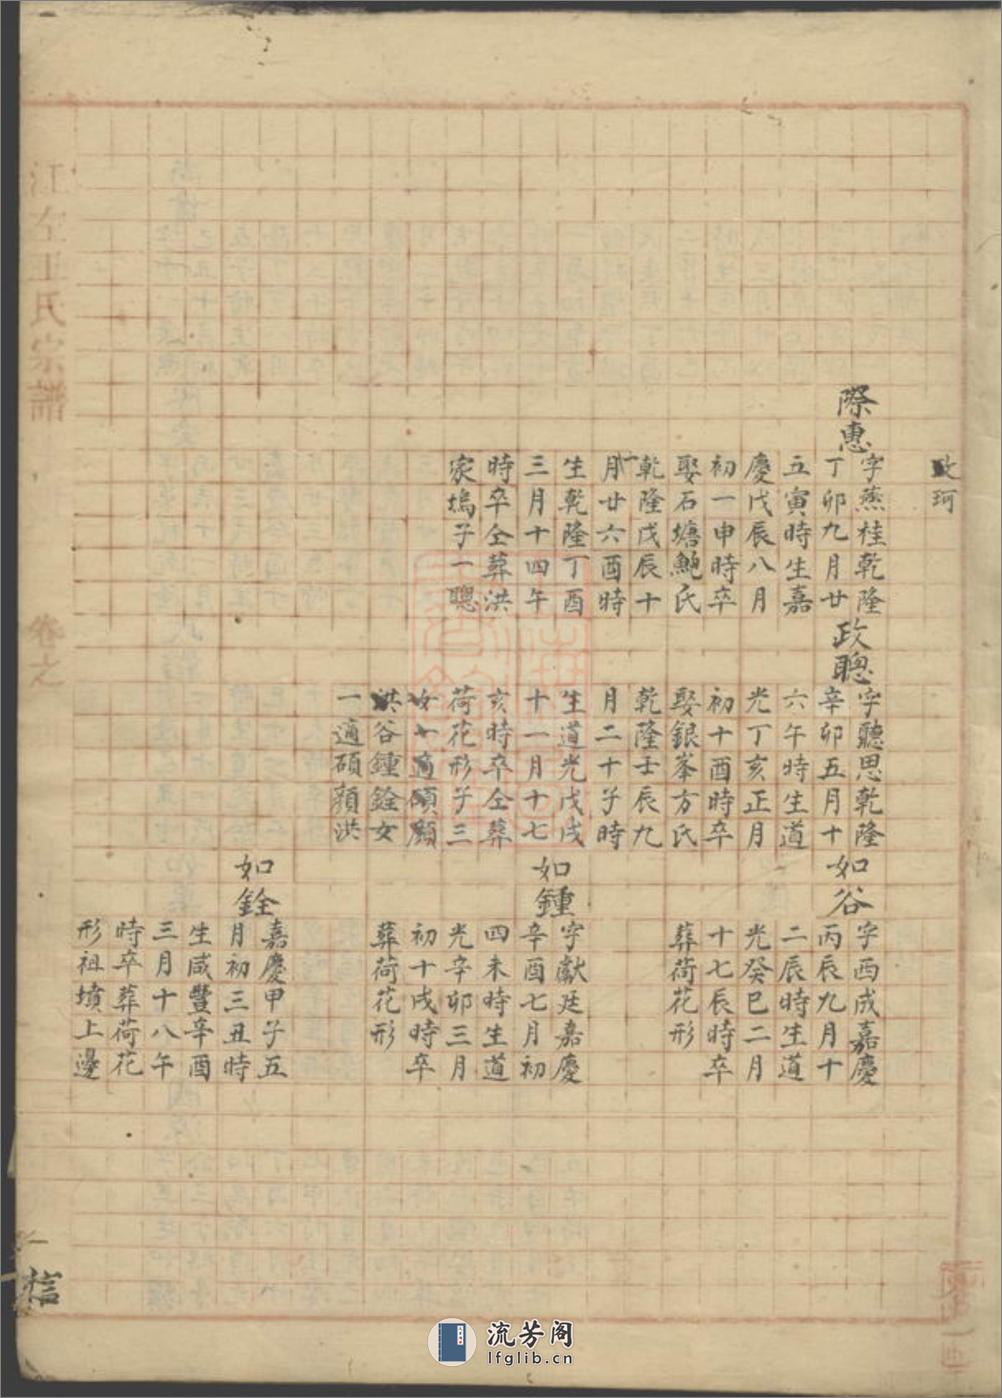 政珂
際惠
字蒸桂乾隆
丁卯九月廿
五寅時生嘉
慶戊辰八月
初一申時卒
娶石塘鮑氏
乾隆戊辰十
一月廿六酉時
生乾隆丁酉
三月十四午
時卒仝葬洪
家塢子一聰
政聰
字聽思乾隆
辛卯五月十
六午時生道
光丁亥正月
初十酉時卒
娶銀峯方氏
乾隆壬辰九
月二十子時
生道光戊戌
十一月十七
亥時卒仝葬
荷花形子三
谷鍾銓女
一適碩頟洪
如谷
字西成嘉慶
丙辰九月十
二辰時生道
光癸巳二月
十七辰時卒
葬荷花形
如鍾
字獻廷嘉慶
辛酉七月初
四未時生道
光辛卯三月
初十戌時卒
葬荷花形
如銓
嘉慶甲子五
月初三丑時
生咸豐辛酉
三月十八午
時卒葬荷花
形祖墳上邊
江左王氏宗譜
卷之
一
信
流芳阁
lfglib.cn